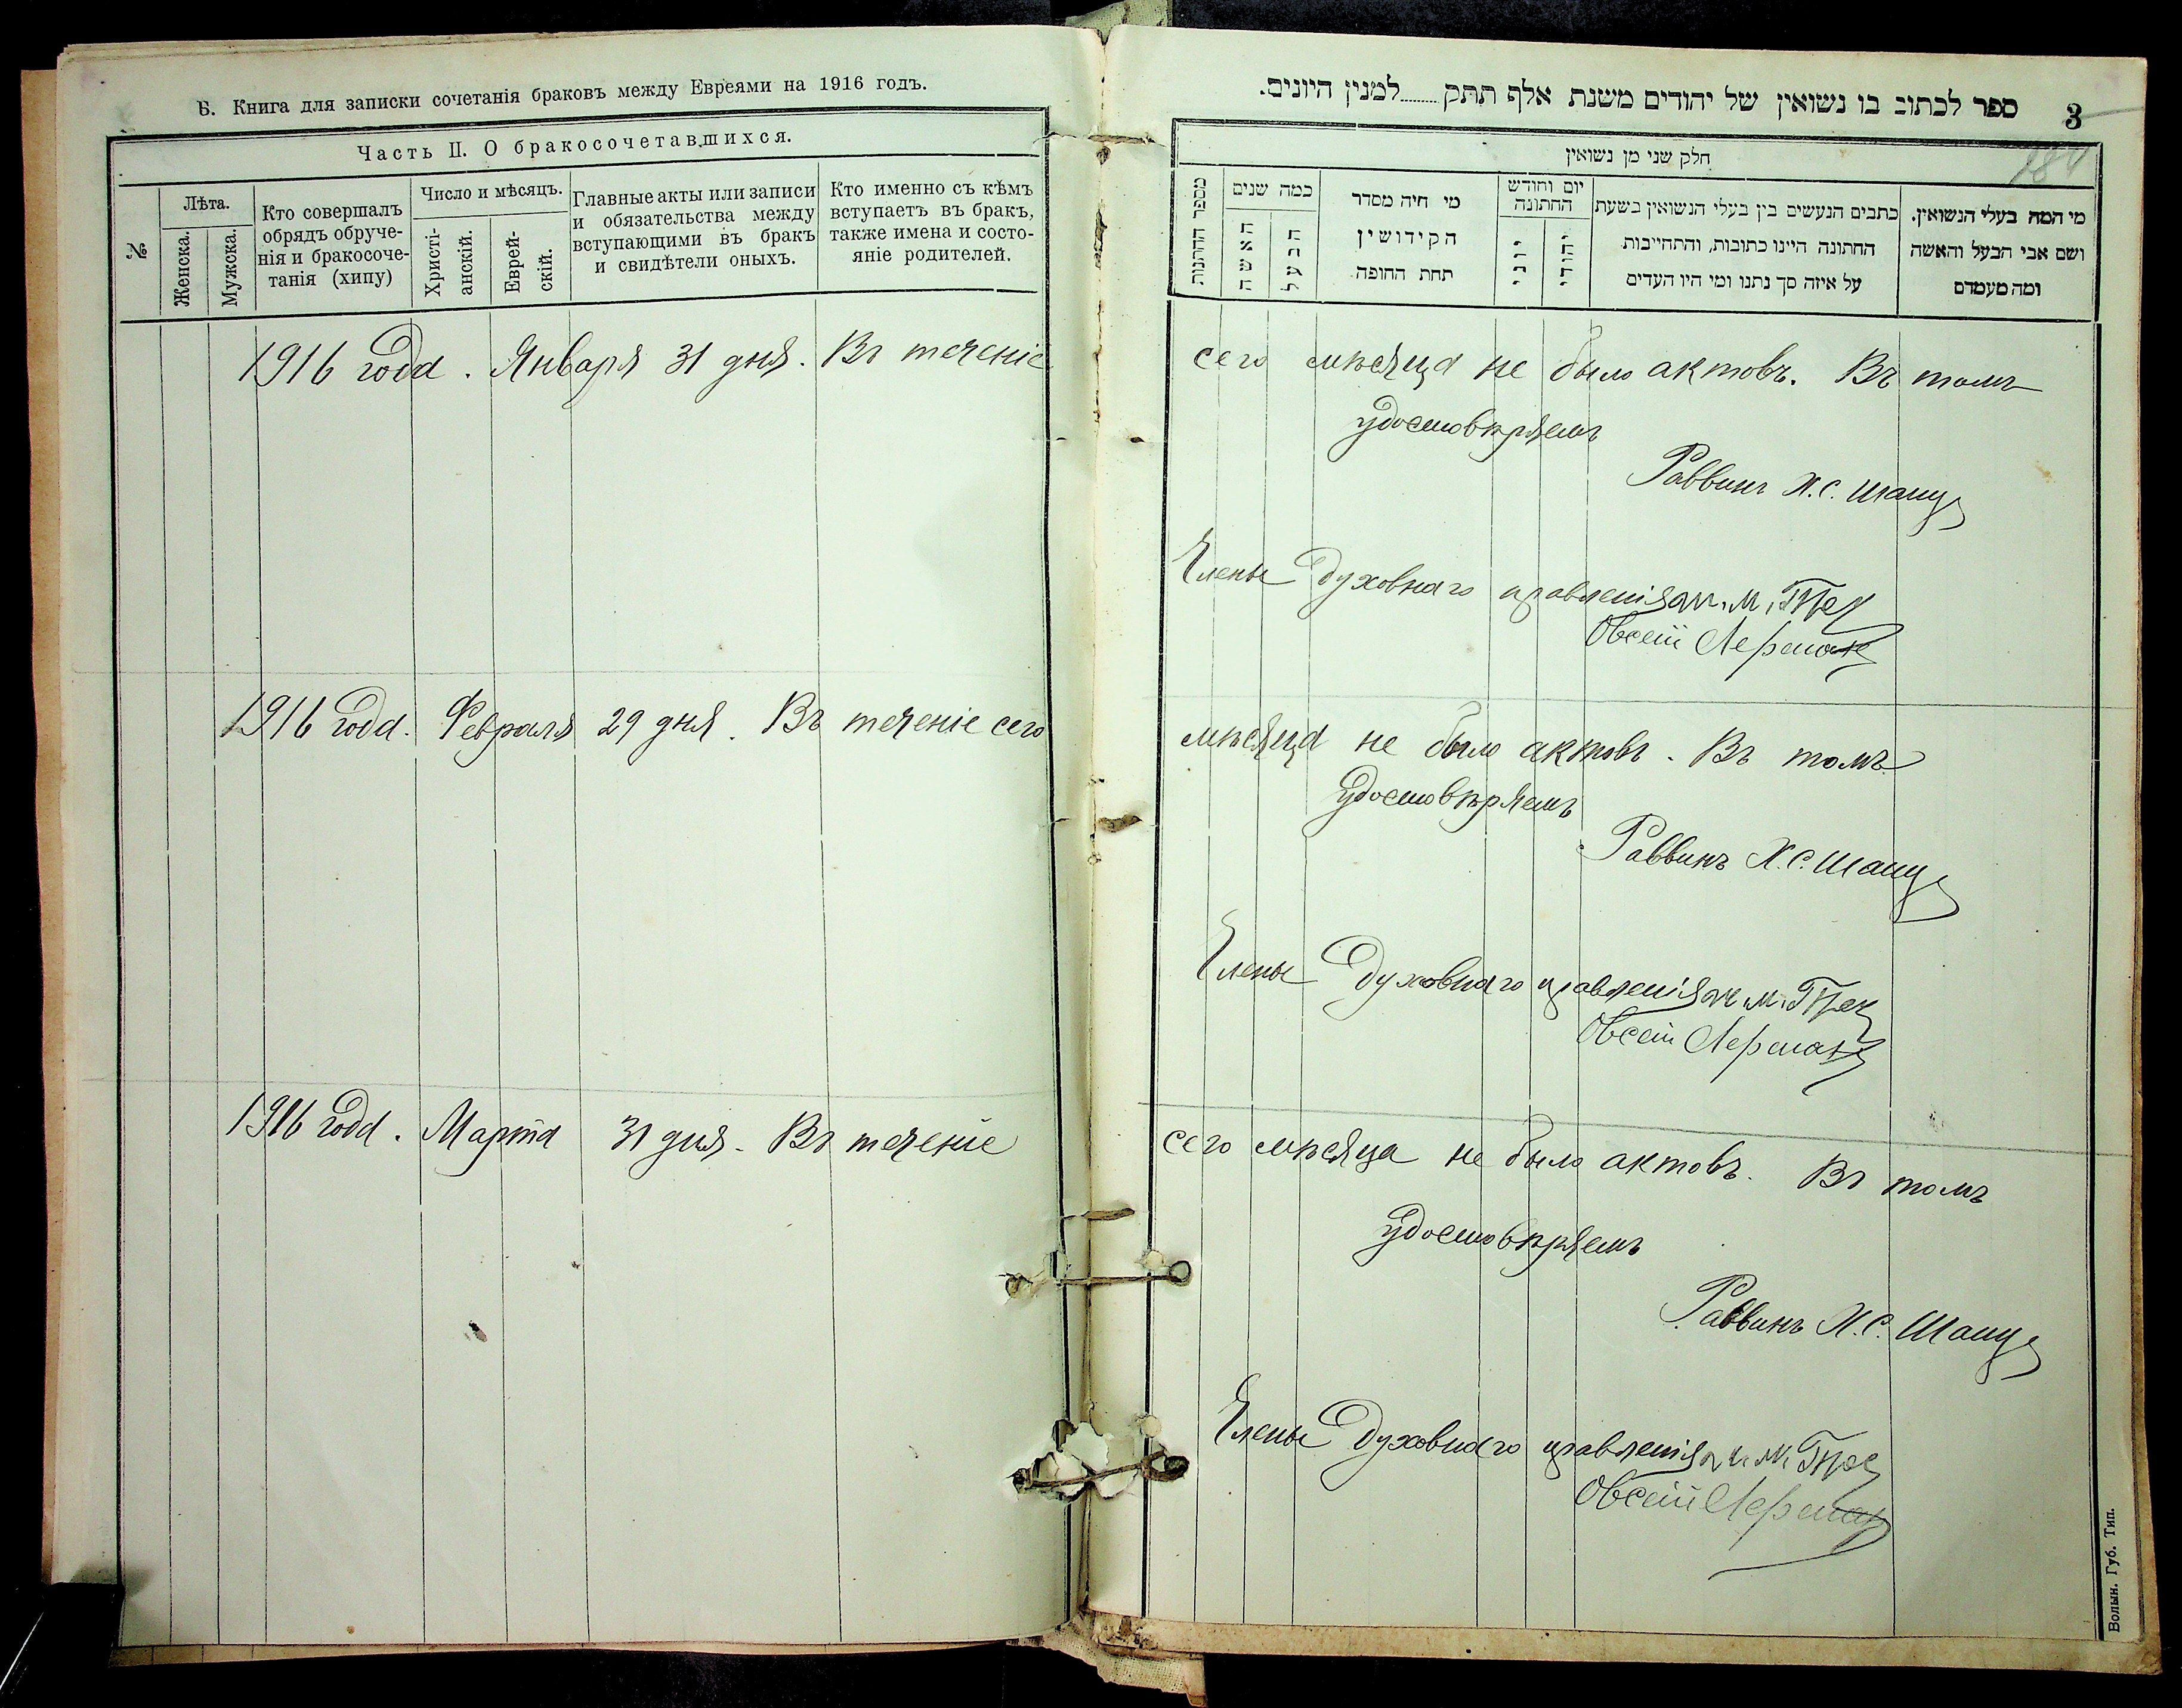 Б. Книга для записки сочетанія браковъ между Евреями на 1916 годъ.
Часть II. О бракосочетавшихся.
№
Лѣта.
Женска.
Мужска.
Кто совершалъ
обрядъ обруче-
нія и бракосоче-
танія (хипу)
Число и мѣсяцъ.
Христі-
анскій.
Еврей-
скій.
Главные акты или записи
и обязательства между
вступающими въ бракъ
и свидѣтели оныхъ.
Кто именно съ кѣмъ
вступаетъ въ бракъ,
также имена и состо-
яніе родителей.
1916 года. Января 31 дня. Въ теченіе
1916 года. Февраля 29 дня. Въ теченіе сего
1916 года. Марта 31 дня. Въ теченіе
ספר לכתוב בו נשואין של יהודים משנת אלף תתק........למנין היונים.
3
חלק שני מן נשואין
מי המה בעלי הנשואין.
ושם אבי הבעל והאשה
ומה מעמדם
כתבים הנעשים בין בעלי הנשואין בשעת
החתונה היינו כתובות, והתחייבות
על איזה סך נתנו ומי היו העדים
יום וחודש
החתונה
יהודי
יוני
מי חיה מסדר
הקידושין
תחת החופה
כמה שנים
הבעל
האשה
מספר החתונות
сего мѣсяца не было актовъ. Въ томъ
удостовѣряемъ
Раввинъ Х. С. Шапу
Члены Духовнаго правленія
Овсей Лерман
мѣсяца не было актовъ. Въ томъ
удостовѣряемъ
Раввинъ Х. С. Шапу
Члены Духовнаго правленія
Овсей Лерман
сего мѣсяца не было актовъ. Въ томъ
удостовѣряемъ
Раввинъ Х. С. Шапу
Члены Духовнаго правленія
Овсей Лерман
Волын. Губ. Тип.